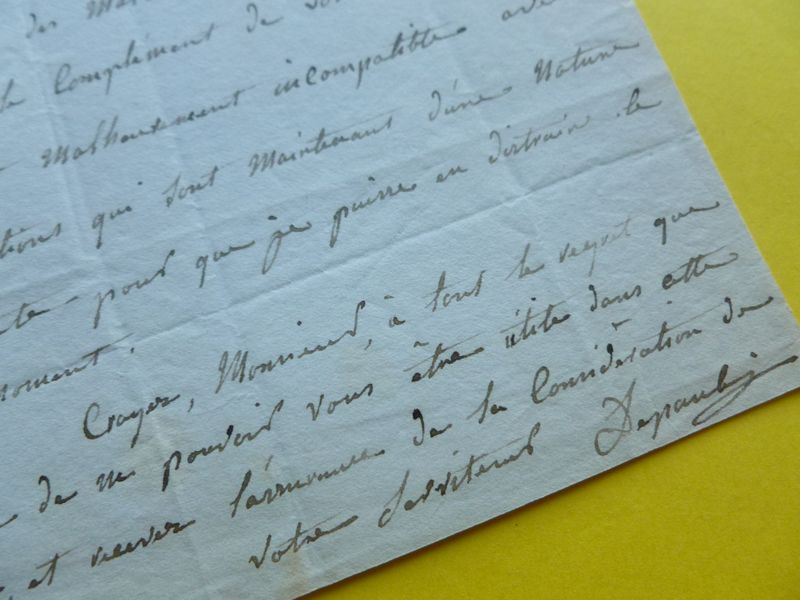 des
le Complément de
Malheureusement incompatible avec
tions qui sont Maintenant d'une Nature
pour que je puisse en distraire le
moment.
Croyez, Monsieur, à tout le regret que
de ne pouvoir vous être utile dans cette
et recevez l'assurance de la Considération de
votre serviteur Depaulis